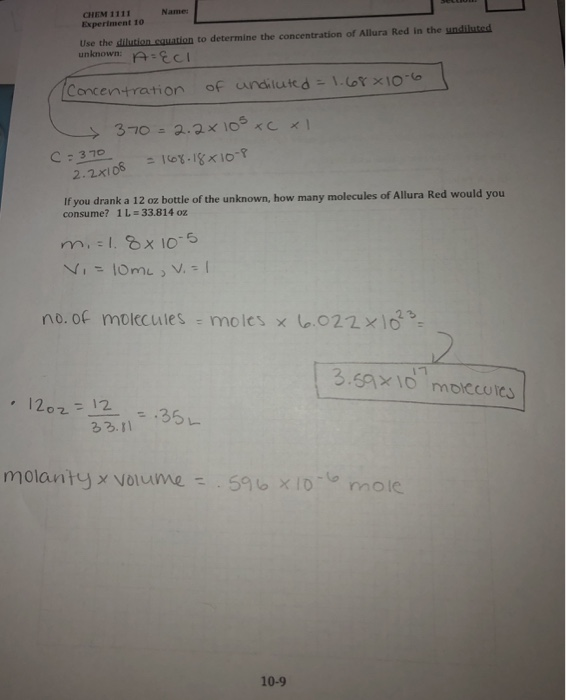 CHEM 1111 Name:
Experiment 10
Use the dilution equation to determine the concentration of Allura Red in the undiluted
unknown: A=ƐCl
Concentration of undiluted = 1.68 ×10-6
370 = 2.2 × 10⁵ × C × 1
C = 370/2.2×10⁸ = 168.18 × 10⁻⁸
If you drank a 12 oz bottle of the unknown, how many molecules of Allura Red would you
consume? 1 L = 33.814 oz
m₁ = 1.8 × 10⁻⁵
V₁ = 10mL, V. = 1
no. of molecules = moles × 6.022 × 10²³ =
3.59 × 10¹⁷ molecules
• 12oz = 12/33.81 = .35L
molarity × volume = .596 × 10⁻⁶ mole
10-9